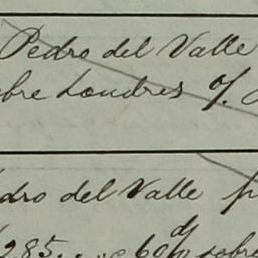 Pedro del Valle
bre Londres
dro del Valle
285 60 d/ sobre